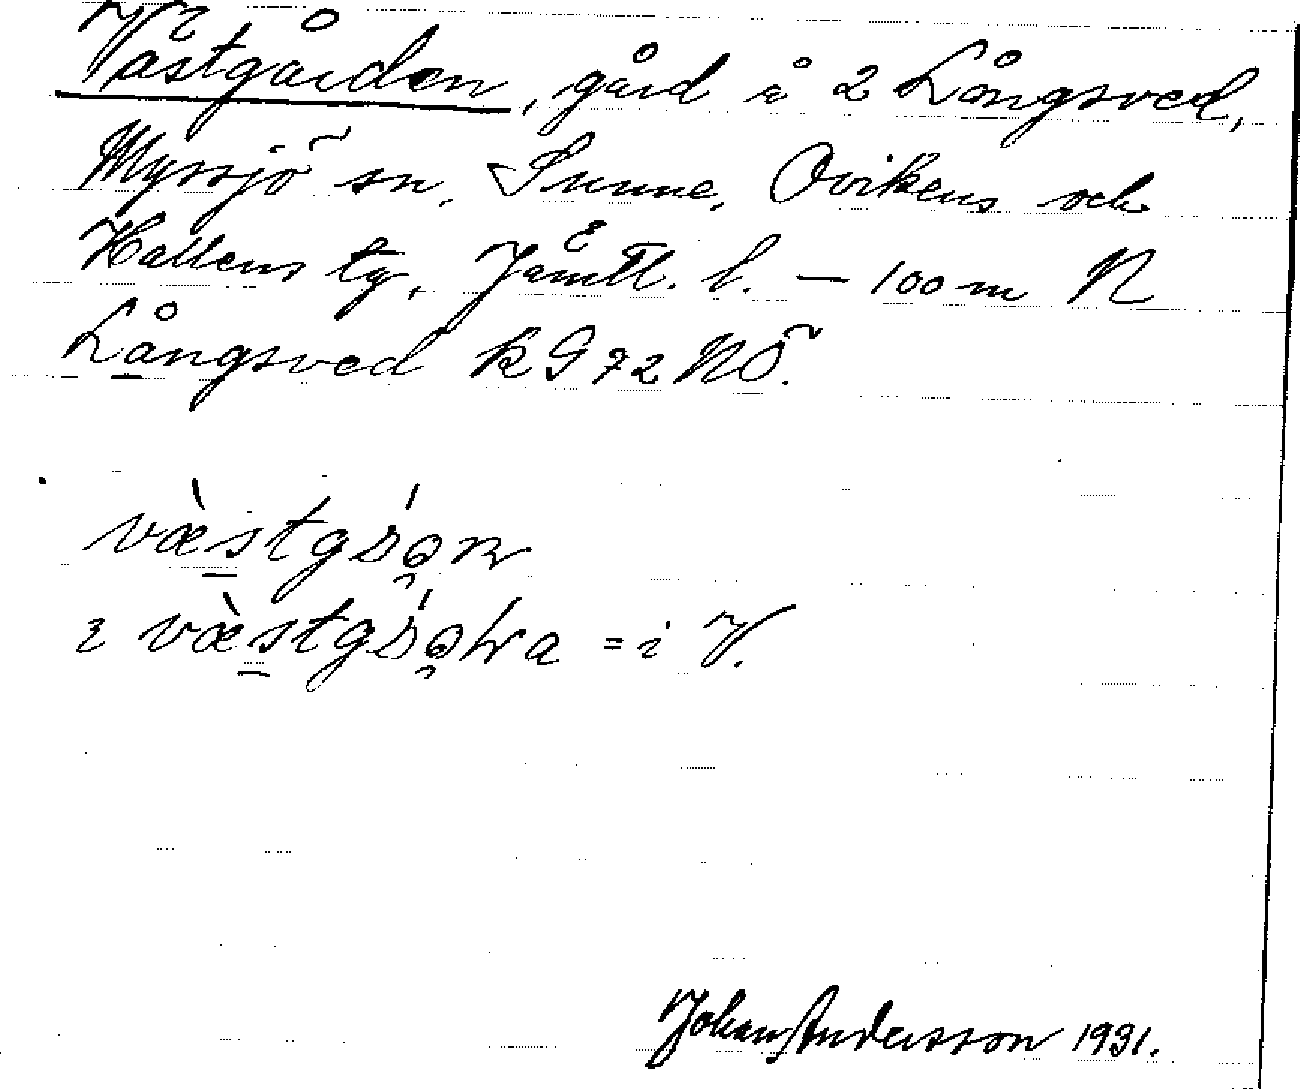 Västgården, gård å 2 Långsved,
Myssjö sn, Sunne, Ovikens och
Hallens tg, Jämtl. l. – 100 m N
Långsved k G 72 NÖ.
i = i V.
Johan Andersson 1931.